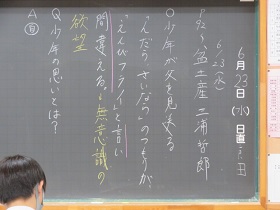 6月23日(水)日直
6/23(水)
盆土産 三浦哲郎
○少年が父を見送る
「んだら、さいなら」のつもりが
「えんびフライ」と言い
間違える。→無意識の
欲望
Q少年の思いとは?
A